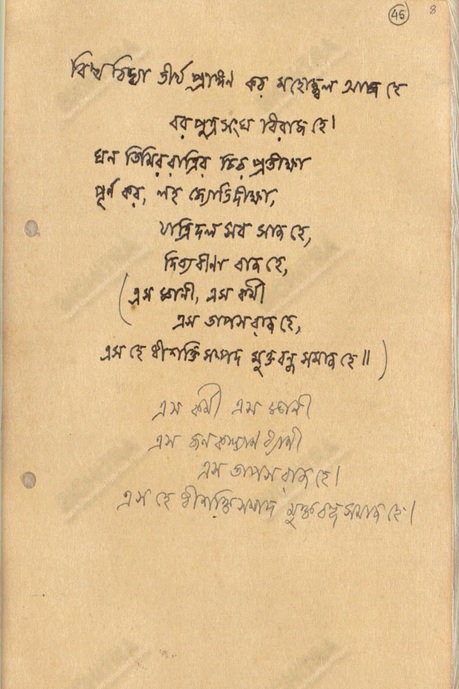 45 8
বিশ্ব বিদ্যা তীর্থ প্রাঙ্গন কর মহোজ্জ্বল আজ হে
বর পুত্রসংঘ বিরাজ হে।
ঘন তিমিররাত্রির চির প্রতীক্ষা
পূর্ণ কর, লহ জ্যোতিদীক্ষা,
যাত্রিদল সব সাজ হে,
দিব্যবীণা বাজ হে,
(এস জ্ঞানী, এস কর্মী
এস তাপসরাজ হে,
এস হে ধীশক্তি সম্পদ মুক্তবন্ধ সমাজ হে॥)
এস কর্মী এস জ্ঞানী
এস জনকল্যাণ ধ্যানী
এস তাপস রাজ হে।
এস হে ধীশক্তিসম্পদ মুক্তবন্ধ সমাজ হে।